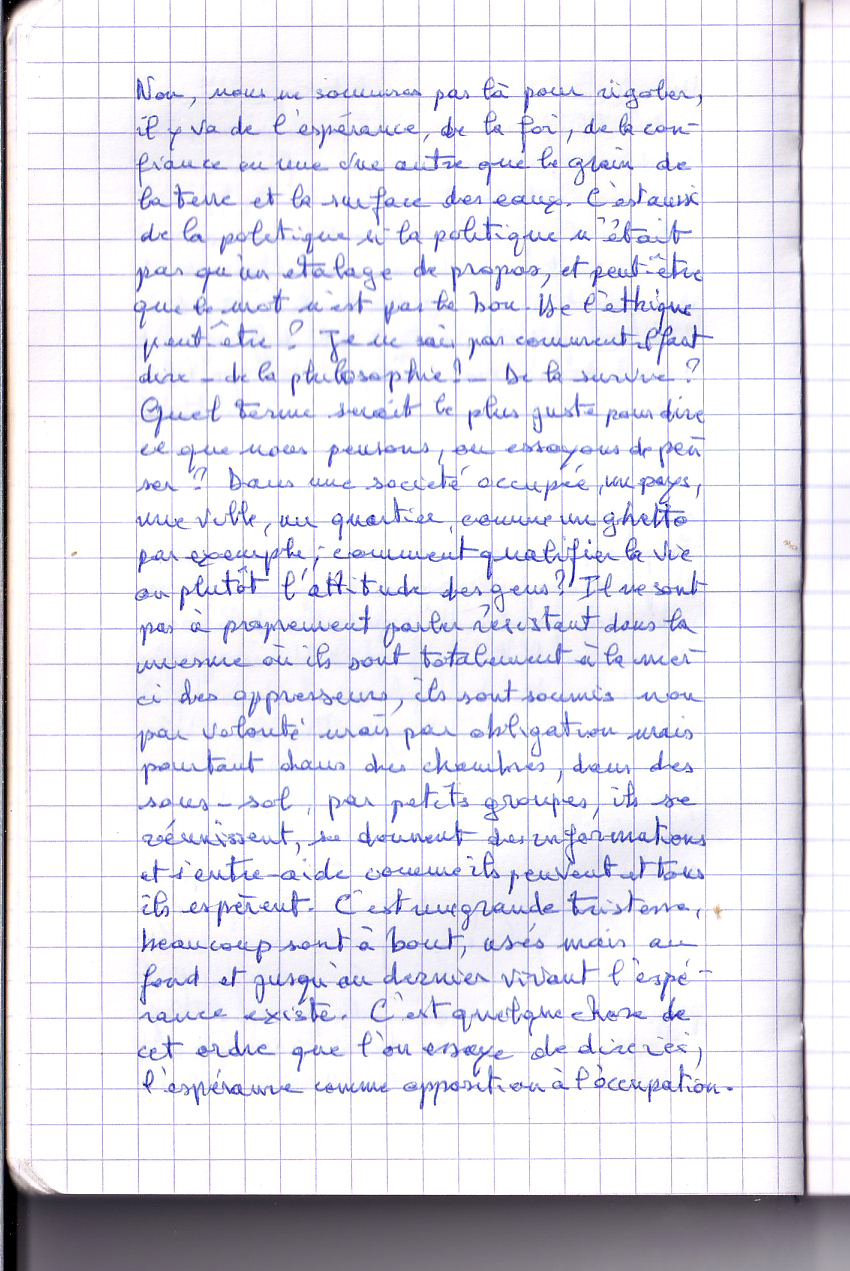 Non, nous ne sommes pas là pour rigoler,
il y va de l'espérance, de la foi, de la con-
fiance en une vue autre que le grain de
la terre et la surface des eaux. C'est aussi
de la politique si la politique n'était
pas qu'un étalage de propos, et peut-être
que le mot n'est pas le bon. De l'éthique
peut-être ? Je ne sais pas comment il faut
dire – de la philosophie ! – De la survie ?
Quel terme serait le plus juste pour dire
ce que nous pensons, ou essayons de pen
ser ? Dans une société occupée, un pays,
une ville, un quartier, comme un ghetto
par exemple ; comment qualifier la vie
ou plutôt l'attitude des gens ? Il ne sont
pas à proprement parler résistant dans la
mesure où ils sont totalement à la mer-
ci des oppresseurs, ils sont soumis non
par volonté mais par obligation mais
pourtant dans des chambres, dans des
sous-sol, par petits groupes, ils se
réunissent, se donnent des informations
et s'entre-aide comme ils peuvent et tous
ils espèrent. C'est une grande tristesse,
beaucoup sont à bout, usés mais au
fond et jusqu'au dernier vivant l'espé-
rance existe. C'est quelque chose de
cet ordre que l'on essaye de dire ici,
l'espérance comme opposition à l'occupation.